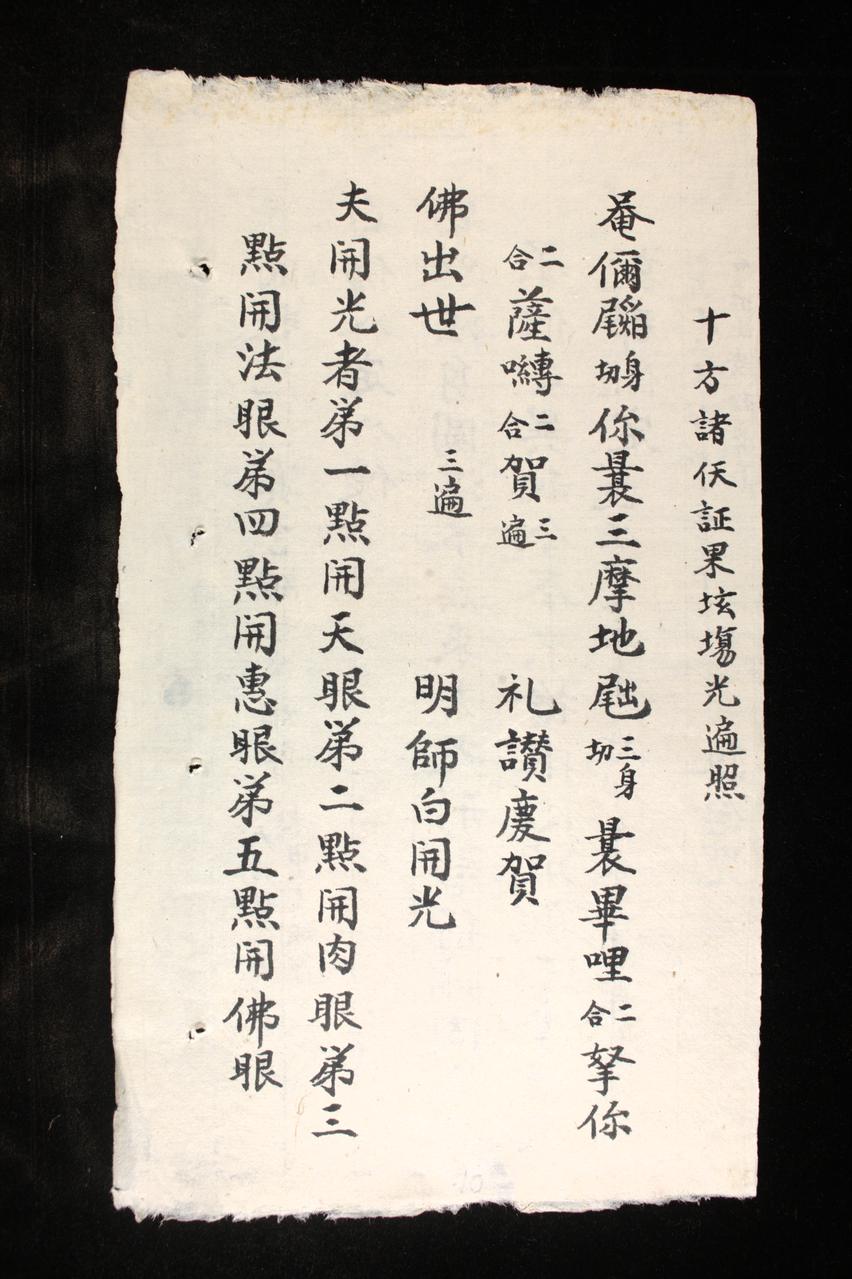 十方諸仸証果垓塲光遍照
菴儞𡲼切身你曩三摩地𡲬切三身曩畢哩合二拏你
合二薩嚩合二賀遍三 礼讃慶賀
佛出世 三遍 明師白開光
夫開光者第一點開天眼第二點開肉眼第三
點開法眼第四點開惠眼第五點開佛眼